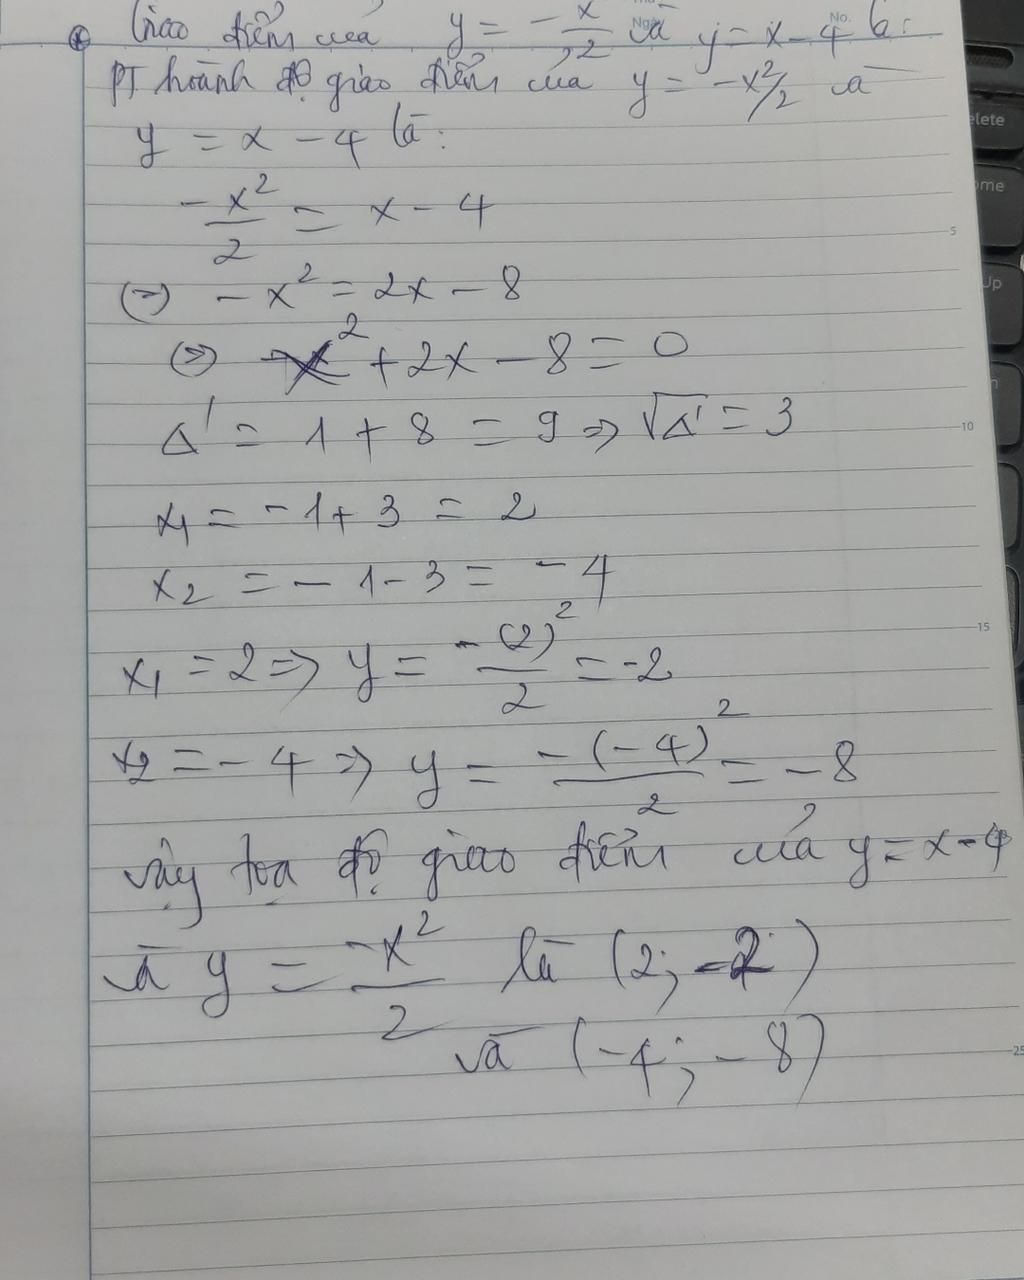 Giao điểm của y = -x/2 và y = x - 4 là:
PT hoành độ giao điểm của y = -x²/2 và
y = x - 4 là:
-x²/2 = x - 4
(=) -x² = 2x - 8
(=) x² + 2x - 8 = 0
Δ' = 1 + 8 = 9 => √Δ' = 3
x₁ = -1 + 3 = 2
x₂ = -1 - 3 = -4
x₁ = 2 => y = -(2)²/2 = -2
x₂ = -4 => y = -(-4)²/2 = -8
vậy tọa độ giao điểm của y = x - 4
và y = -x²/2 là (2; -2)
và (-4; -8)
Ngày
No.
5
10
15
25
elete
ome
Up